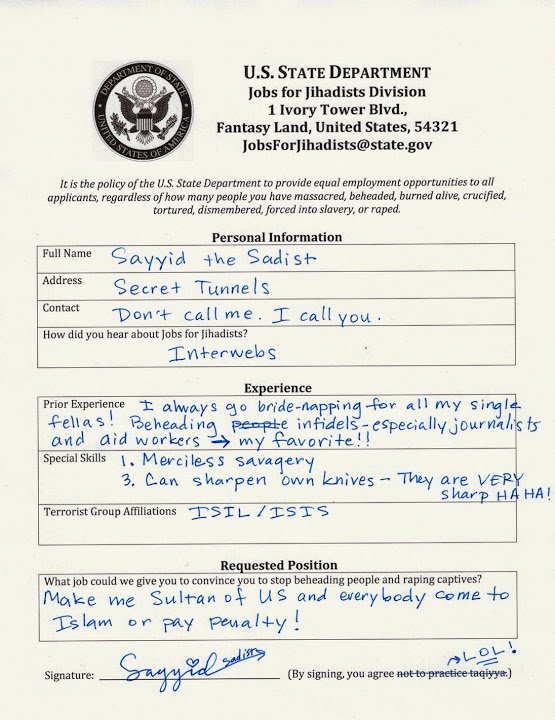 DEPARTMENT OF STATE
UNITED STATES OF AMERICA
U.S. STATE DEPARTMENT
Jobs for Jihadists Division
1 Ivory Tower Blvd.,
Fantasy Land, United States, 54321
JobsForJihadists@state.gov
It is the policy of the U.S. State Department to provide equal employment opportunities to all
applicants, regardless of how many people you have massacred, beheaded, burned alive, crucified,
tortured, dismembered, forced into slavery, or raped.
Personal Information
Full Name Sayyid the Sadist
Address Secret Tunnels
Contact Don't call me. I call you.
How did you hear about Jobs for Jihadists?
Interwebs
Experience
Prior Experience I always go bride-napping for all my single
fellas! Beheading people infidels - especially journalists
and aid workers → my favorite!!
Special Skills 1. Merciless savagery
3. Can sharpen own knives - They are VERY
sharp HA HA!
Terrorist Group Affiliations ISIL / ISIS
Requested Position
What job could we give you to convince you to stop beheading people and raping captives?
Make me Sultan of US and everybody come to
Islam or pay penalty!
→ LOL!
Signature: Sayyid sadist (By signing, you agree not to practice taqiyya.)